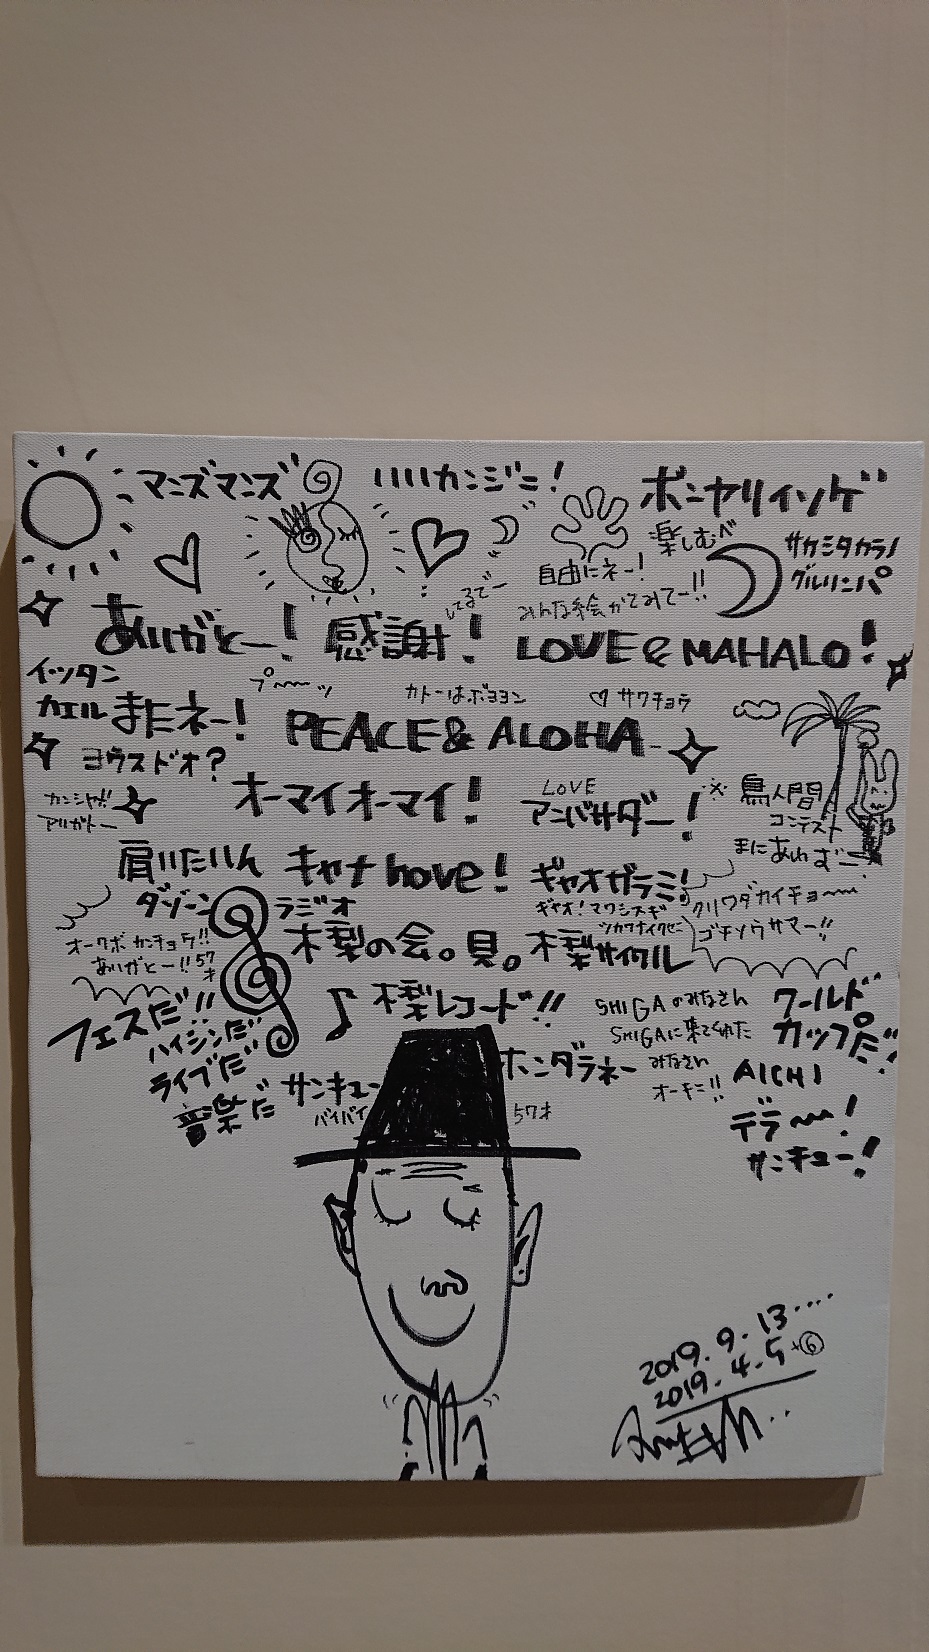 マニズマンズ
いいカンジニ!
ボンヤリィング
楽しむべ
サカミタカラノ
グルリンパ
自由にネー!
みんな絵かてみてー!!
してるでー
ありがとー! 感謝! LOVE & MAHALO!
イッタン
カエル
またネー!
プ〜〜ッ
カトーはボヨヨン
♡ サクチョウ
PEACE & ALOHA
ヨウスドオ?
カンシャ!!
アリガトー
オーマイオーマイ!
LOVE
アンバサダー!
※鳥人間
コンテスト
まにあわずー
肩いたいん
キャナ hove!
ギャオガラミ!
ギャオ!マワシスギ
ツカワナイクセニ
クリワダカイチョー〜
ゴチソウサマー!!
ダゾーン
ラジオ
オークボ カンチョウ!!
ありがとー!! 57才
木梨の会。見。木梨サイクル
♪ 木梨レコード!!
フェスだ!!
ハイジンだ
ライブだ
音楽だ
サンキュー
バイバイ
ホンダラネー
57才
SHIGAのみなさん
SHIGAに来てくれた
みなさん
オーキニ!!
ワールド
カップだ!
AICHI
デラ〜!
サンキュー!
2019.9.13....
2019.4.5+⑥